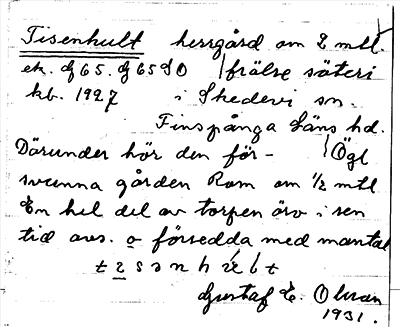 Tisenhult herrgård om 2 mtl.
ek. bl 65. bl 65 SO frälse säteri
kb. 1927 i Skedevi sn.
Finspånga Läns hd.
Därunder hör den för- Ögl
svunna gården Ram om ½ mtl
En hel del av torpen äro i sen
tid avs. o försedda med mantal
Gustaf E. Olsson
1931.